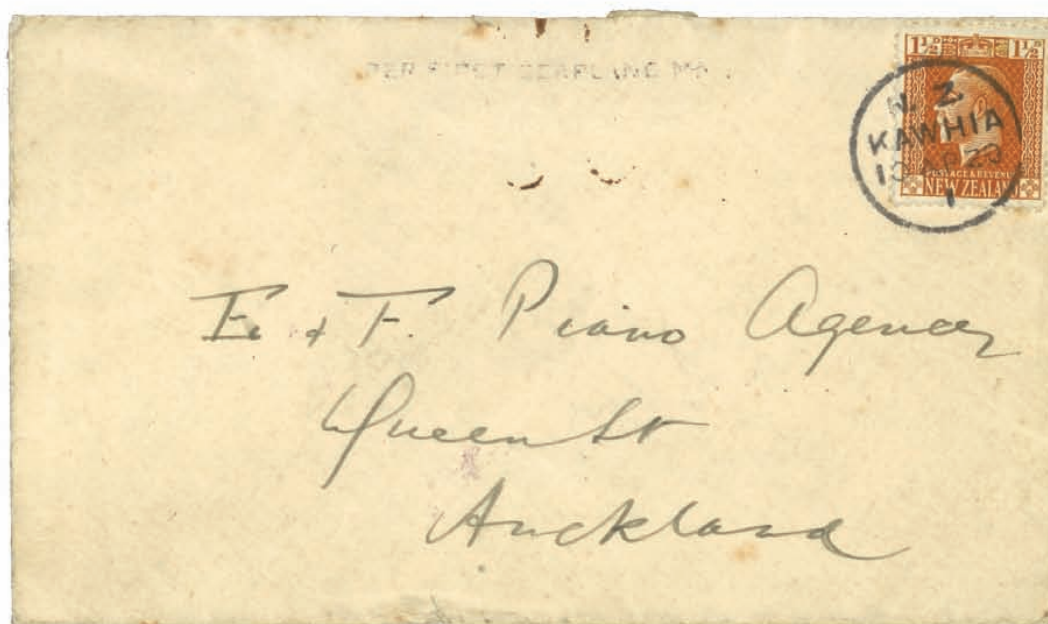 PER FIRST SEAPLANE MAIL
1½ᴰ 1½ᴰ
N. Z.
KAWHIA
AP 20
1
POSTAGE & REVENUE
NEW ZEALAND
E. & F. Piano Agency
Queen St
Auckland